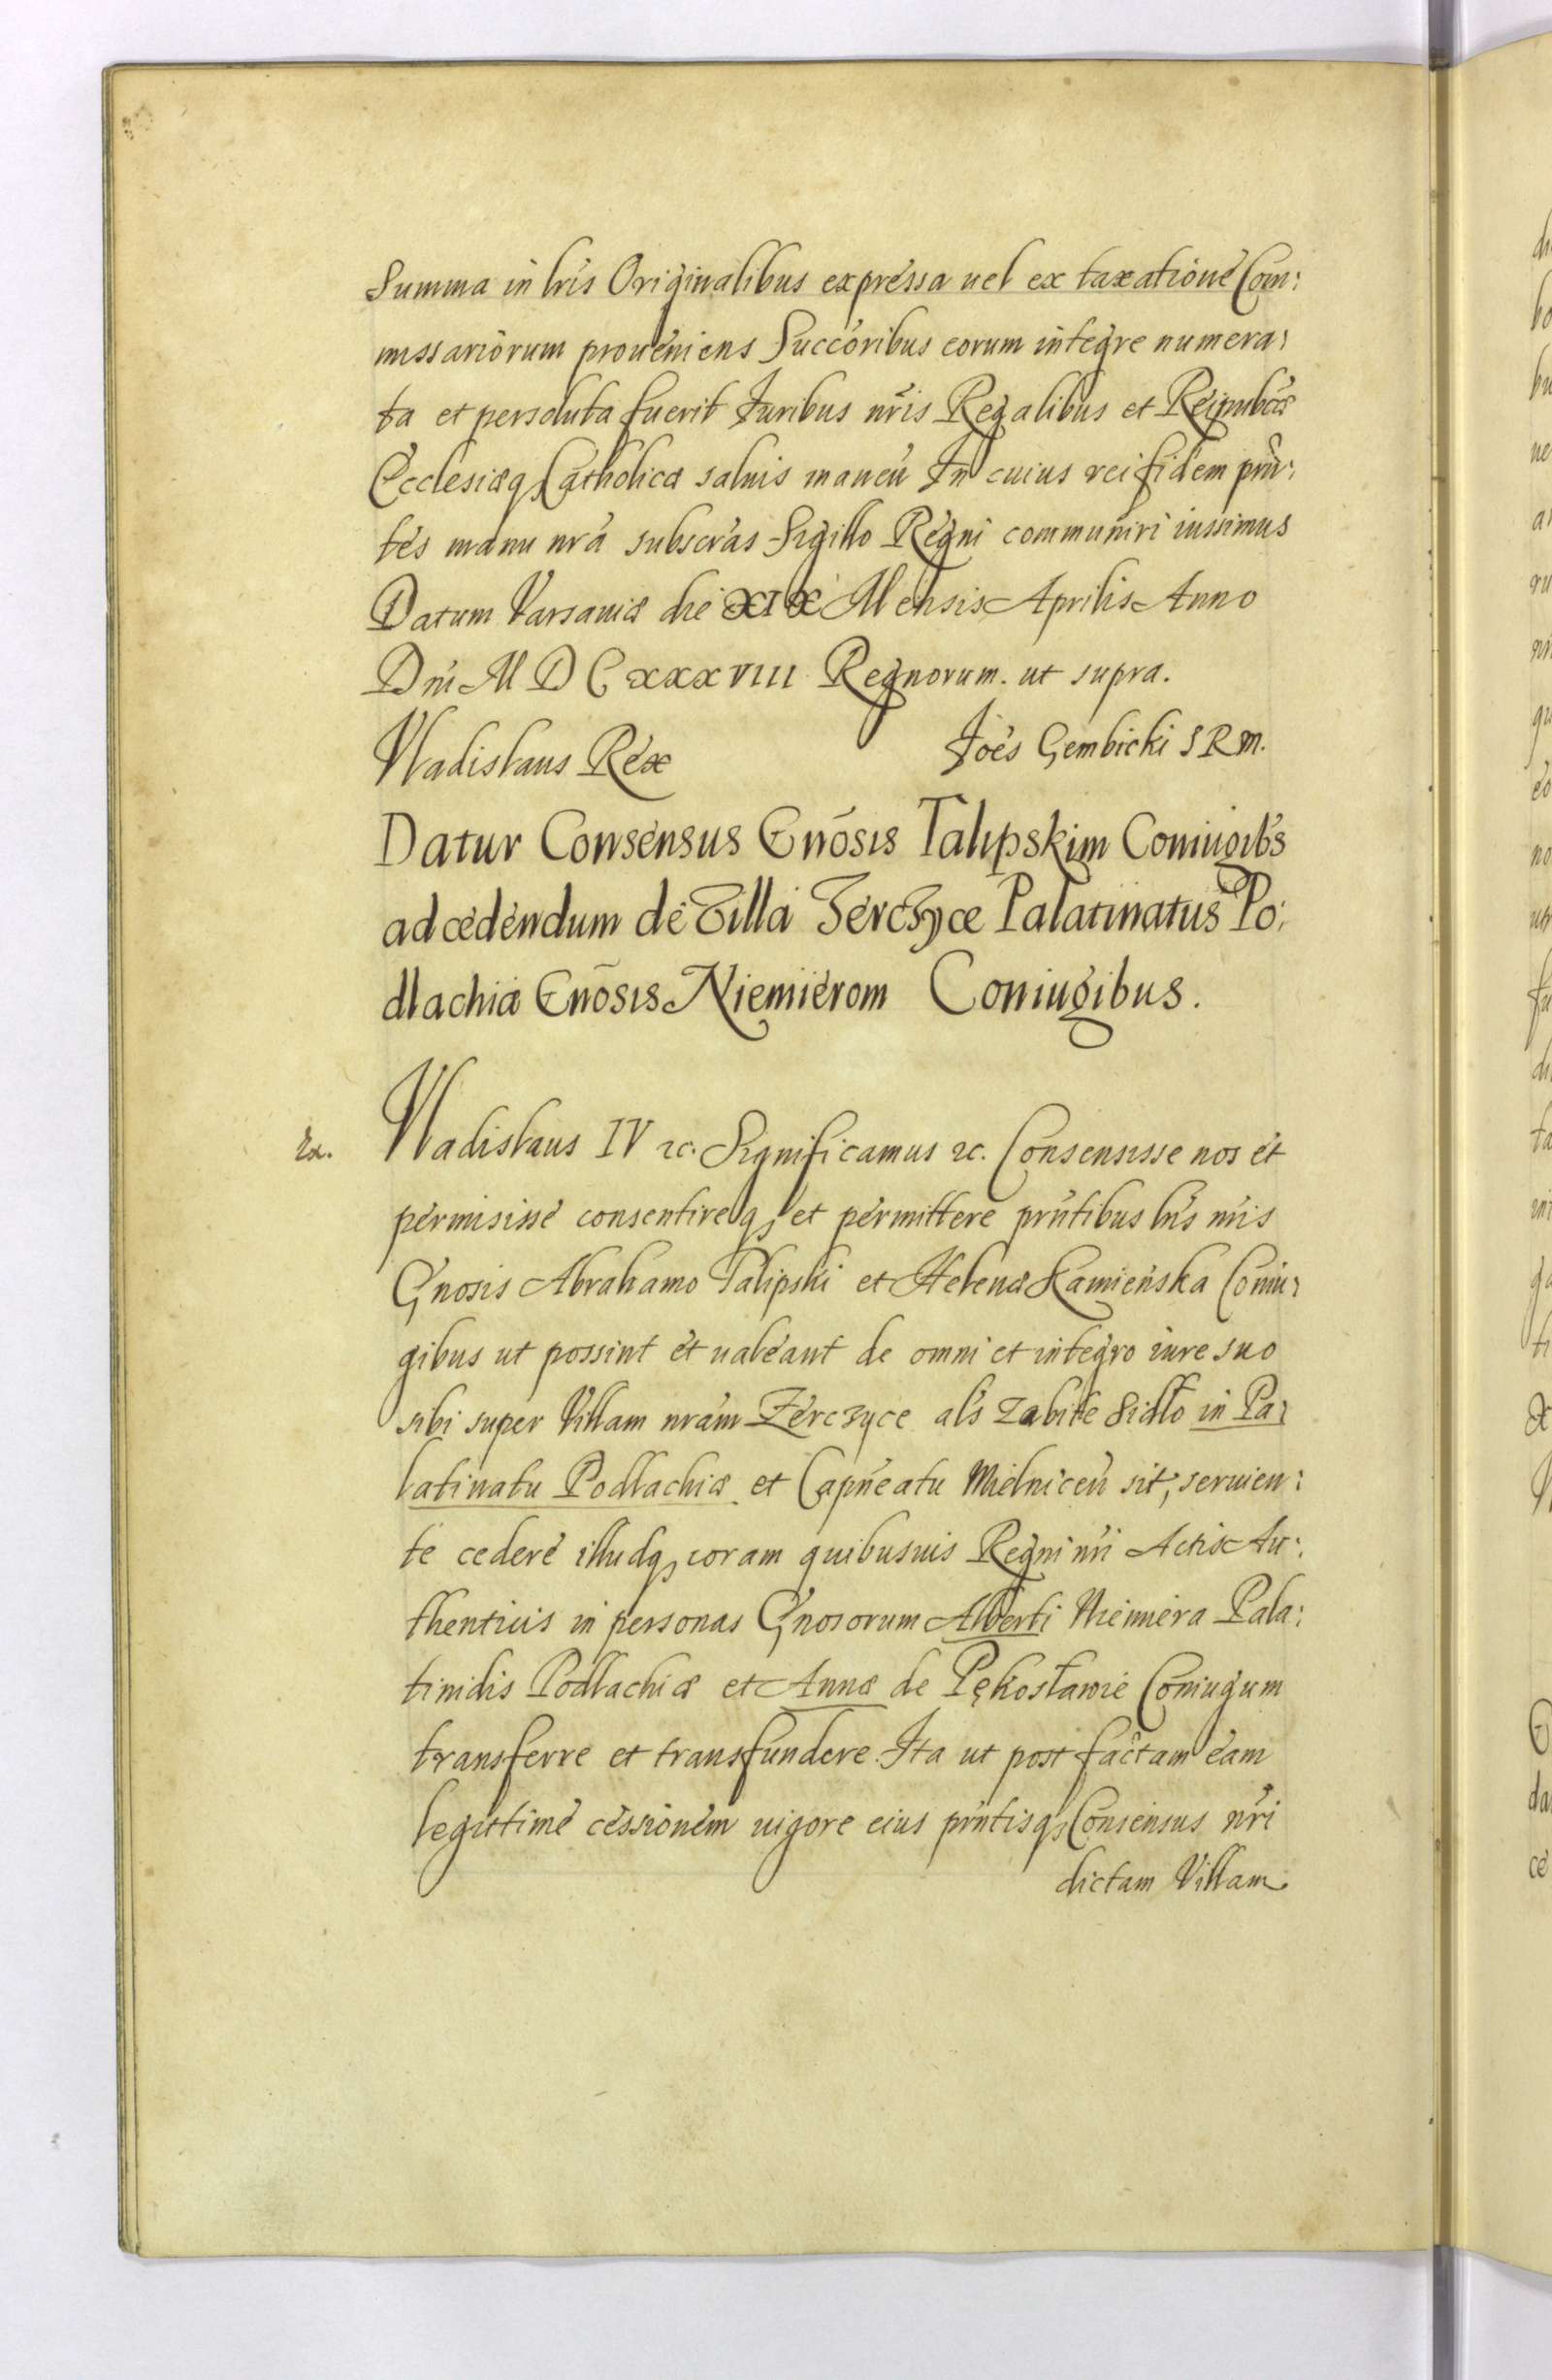 Summa in lris Originalibus expressa uel ex taxatione Com:
missariorum proueniens Succoribus eorum integre numera:
ta et persoluta fuerit Juribus nris Regalibus et Reipubcæ
Ecclesiæq, Catholicæ saluis maneñ In cuius rei fidem prñ:
tes manu nra subscras Sigillo Regni communiri iussimus
Datum Varsauiæ die XIX Mensis Aprilis Anno
Dni M D C XXX VIII Regnorum. ut supra.
Vladislaus Rex Joes Gembicki S R M.
Datur Consensus Gnosis Talipskim Coniugibs
ad cedendum de Villa Zerczyce Palatinatus Po:
dlachiæ Gnosis Niemierom Coniugibus.
Vladislaus IV etc. Significamus etc. Consensisse nos et
permisisse consentireq, et permittere prntibus lris nris
Gnosis Abrahamo Talipski et Helenæ Kamienska Coniu:
gibus ut possint et ualeant de omni et integro iure suo
sibi super Villam nram Zerczyce als Zabite Sidło in Pa:
latinatu Podlachiæ et Capneatu Mielniceñ sit, seruien:
te cedere illudq, coram quibusuis Regni nri Actis Au:
thenticis in personas Gnosorum Alberti Niemiera Pala:
tinidis Podlachiæ et Annæ de Pękosławie Coniugum
transferre et transfundere. Ita ut post factam eam
legittime cessionem uigore eius prntisq, Consensus nri
dictam Villam